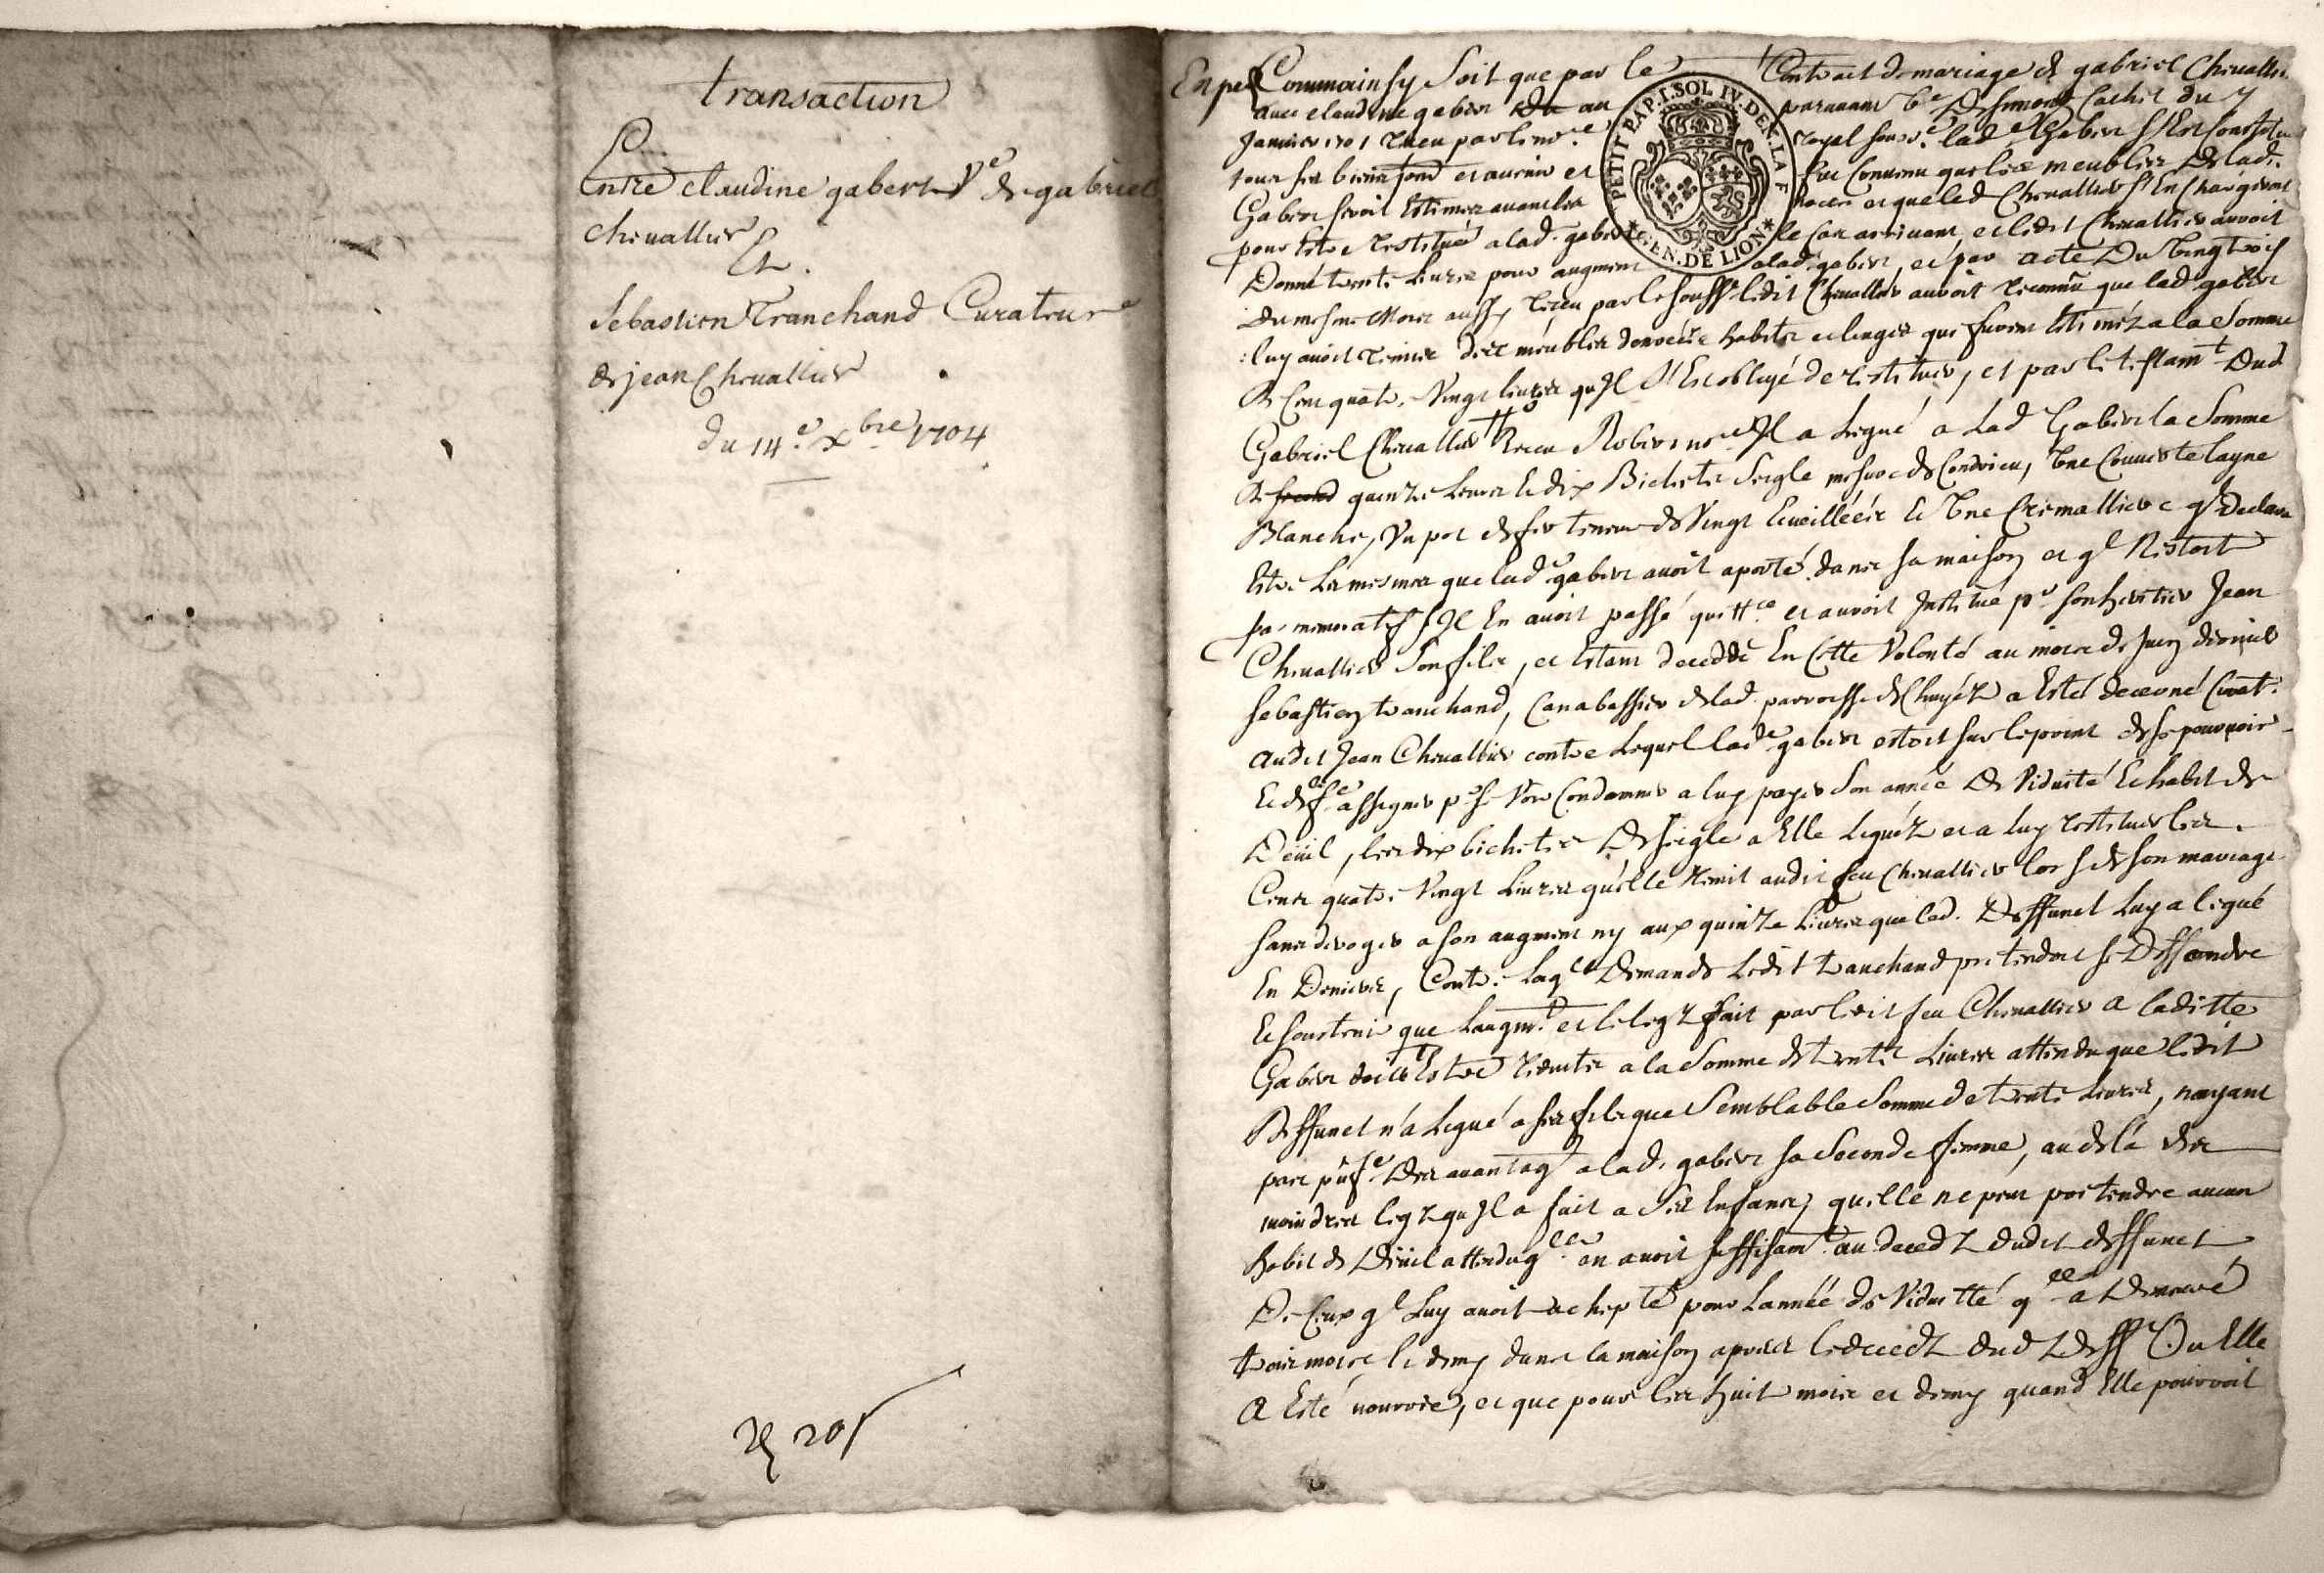 transaction
Entre claudine gabert Ve de gabriel
Chevallier
Et.
Sebastien Tranchand Curateur
de jean Chevallier
du 14.e Xbre 1704
205
PETIT PAP. 1. SOL IV. DEN. LA F
GEN. DE LION
Comme ainsy Soit que par le Contract de mariage de gabriel Chevallier
avec claudine gabert au paravant Ve De simond du 7
Janvier 1701 receu par le no.re royal sous.e lad.e Gabert
tous ses biens et avenir et fut Convenu que les meubles De lad.
Gabert seroit Estimez avant les noces et que led Chevallier s'En Chargeroit
pour Estre restitué a lad. gabert le Cas arrivant et ledit Chevallier auroit
Donné trente Livres pour augment a lad gabert, et par acte Du Vingt trois
Du mesme Mois aussy receu par le soussé ledit Chevallier auroit reconnu que lad gabert
luy avoit remis des meubles denrées habits et linges qui furent Estimez a la Somme
De Cent quatre Vingt livres qu'Il s'Est obligé de restituer, et par le testamt Dud
Gabriel Chevallier Receu Robert nore Il a Legué a Lad Gabert la Somme
De quinze Livres Et dix Bichets Seigle mesure de Condrieu, Une Couverte layne
Blanche, Un pot de fer teneur de Vingt Ecueillées Et Une Cremalliere ql Declara
Estre Les mesmes que lad gabert avoit aporté dans sa maison et ql
Il En avoit passé quittce et auroit Institué pr son heritier Jean
Chevallier Son fils, et Estant deceddé En Cette Volonté au mois de Juin dernier
sebastien tranchand, Canabassier de lad parroisse de Chuyez a Esté decerné Curatr
audit Jean Chevallier contre Lequel lade gabert estoit sur le point de se pourvoir
Et de assigner pr se Voir Condamner a luy payer Son année De Viduité Et habit de
Deüil, les dix bichets De seigle a Elle Leguez et a luy restituer les
Cent quatre Vingt Livres qu'elle remit audit feu Chevallier lors de son mariage
sans deroger a son augment ny aux quinze Livres que led. Deffunct Luy a legué
En Deniers, Contre Laqle Demande Ledit tranchand pretendoit se Deffendre
Et soustenir que Laugmt et le legz fait par ledit feu Chevallier a laditte
Gabert doivt Estre reduits a la Somme de trente Livres attendu que ledit
Deffunct n'a Legué a ses fils que Semblable Somme de trente Livres, nayant
peu Des avantagz a lad. gabert sa Seconde femme, au dela des
moindres legz qu'Il a fait a Ses Enfans, qu'elle ne peut pretendre aucun
habit de Deüil attendu qelle en avoit suffisamt au decedz dudit deffunct
De Ceux ql Luy avoit achepté pour Lannée de Viduitté qelle a Demeuré
trois mois Et demy dans la maison apres le decedz dudt Deff Ou Elle
a Esté nourrie, et que pour les huit mois et demy quand Elle pourroit